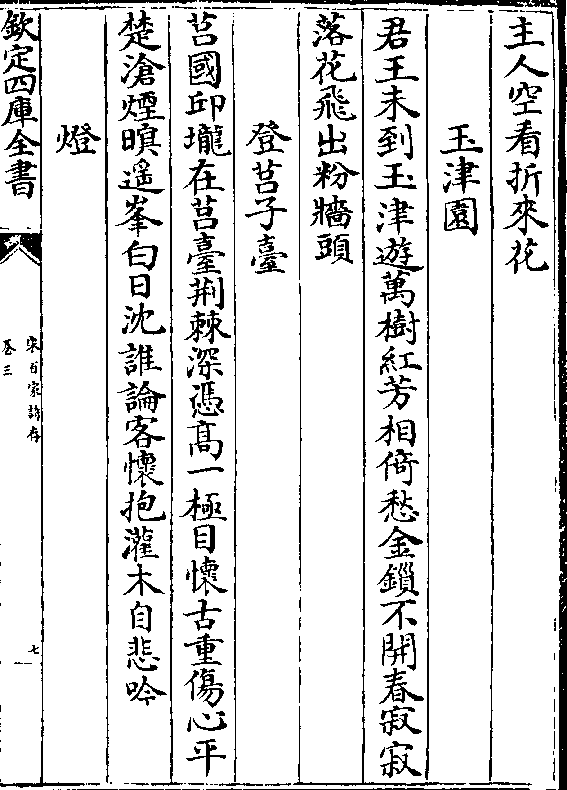 主人空看折來花
玉津園
君王未到玉津遊萬樹紅芳相倚愁金鎖不開春寂寂
落花飛出粉牆頭
登莒子臺
莒國邱壠在莒臺荆棘深憑髙一極目懷古重傷心平
楚滄煙暝遥峯白日沈誰論客懷抱灌木自悲吟
燈
欽定四庫全書
宋百家詩存
卷三
七